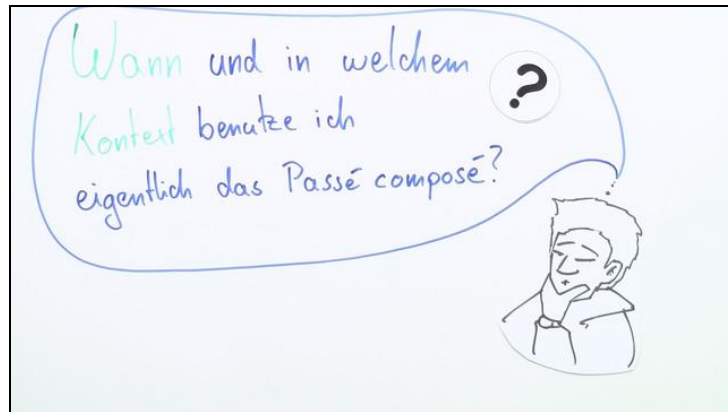 Wann und in welchem
Kontext benutze ich
eigentlich das Passé composé?
?